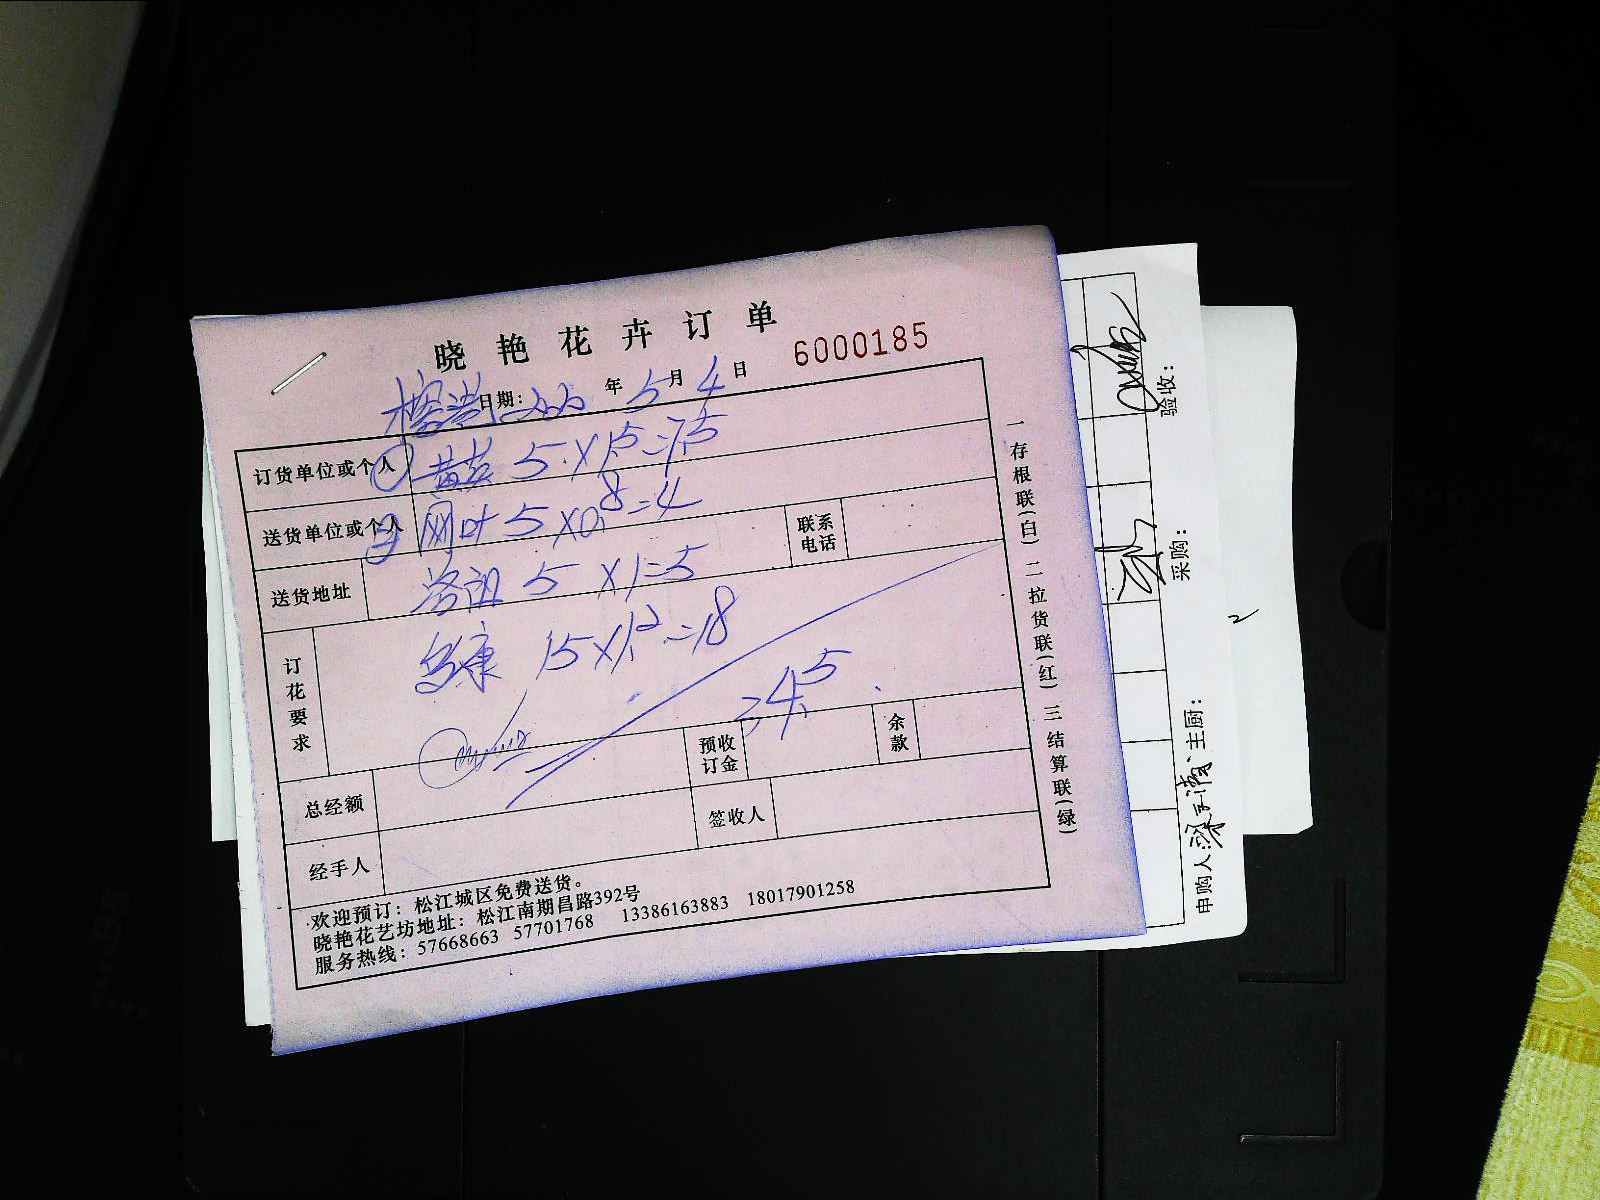 晓艳花卉订单
6000185
日期: 年 5 月 4 日
订货单位或个人 5×1.5=7.5
送货单位或个人 网叶 5×0.8=4
联系电话
送货地址 5×1=5
订花要求 康 15×1.2=18
34.5
总经额
预收订金
余款
经手人
签收人
欢迎预订:松江城区免费送货。
晓艳花艺坊地址:松江南期昌路392号
服务热线:57668663 57701768 13386163883 18017901258
一存根联(白) 二拉货联(红) 三结算联(绿)
申购人: 主厨: 采购: 验收: